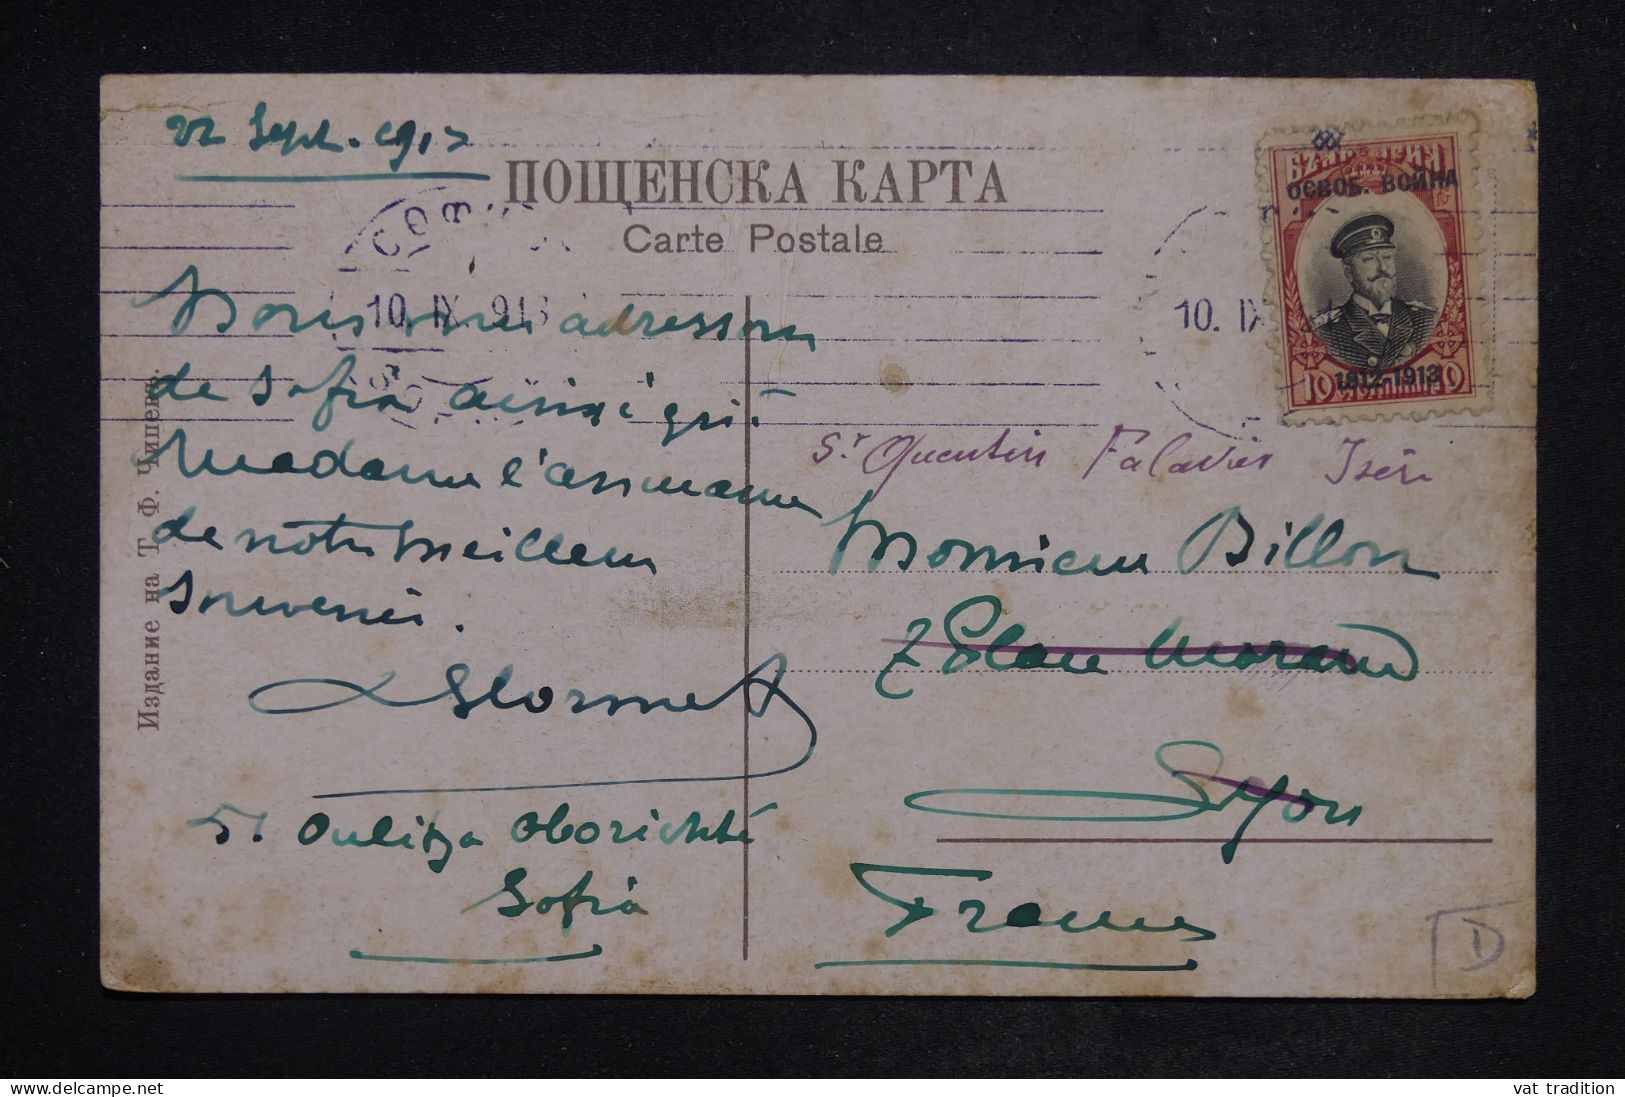 22 Sept. 1913
ПОЩЕНСКА КАРТА
Carte Postale
10. IX. 913
10. IX
БЪЛГАРИЯ
ОСВОБ. ВОЙНА
1912-1913
10 СТОТИНКИ 10
Nous vous adressons
de Sofia ainsi qu'à
Madame l'assurance
de notre meilleur
souvenir.
51 Oulitza Oborichté
Sofia
Издание на Т. Ф. Чипевъ.
St Quentin Falavier Isère
Monsieur Billon
7 Place Morand
Lyon
France
D
delcampe.net
vat tradition